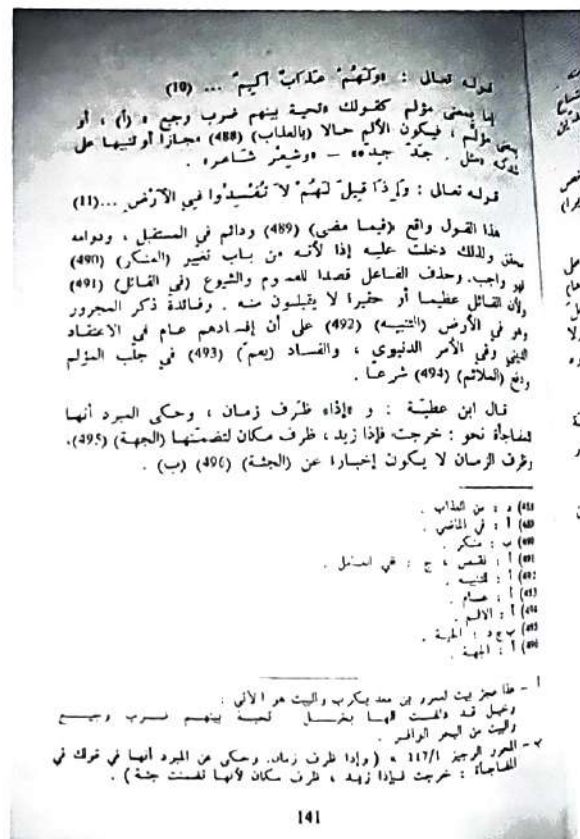 قوله تعالى : «وَلَهُمْ عَذَابٌ أَلِيمٌ ... (10)
إما بمعنى مؤلم كقولك «تحية بينهم ضرب وجيع» (أ) ، أو
بمعنى مؤلَم ، فيكون الألم حالا (بالعذاب) (488) مجازا أو تنبيها على
مثل . جدّ جدّه» — «وشِعْر شَاعر» .
قوله تعالى : وَإِذَا قِيلَ لَهُمْ لاَ تُفْسِدُوا فِي الأَرْضِ ...(11)
هذا القول واقع (فيما مضى) (489) ودائم في المستقبل ، ودوامه
محقق ولذلك دخلت عليه إذا لأنه من باب تغيير (المنكر) (490)
فهو واجب. وحذف الفاعل قصدا للعموم والشيوع (في القائل) (491)
ولأن القائل عظيما أو حقيرا لا يقبلون منه . وفائدة ذكر المجرور
وهو في الأرض (التنبيه) (492) على أن إفسادهم عام في الاعتقاد
الديني وفي الأمر الدنيوي ، والفساد (يعمّ) (493) في جلب المؤلم
ودفع (الملائم) (494) شرعا .
قال ابن عطيّة : و «إذا» ظرف زمان ، وحكى المبرد أنها
للمفاجأة نحو : خرجت فإذا زيد ، ظرف مكان لتضمنها (الجهة) (495).
وظرف الزمان لا يكون إخبارا عن (الجثة) (496) (ب) .
(488) د : من العذاب .
(489) أ : في الماضي .
(490) ب : منكر .
(491) أ : نقص ، ج : في
(492) أ : للتنبيه .
(493) أ : عام .
(494) أ : الالم .
(495) ب ج د : الجهة .
(496) أ : الجهة .
أ – هذا عجز بيت لعمرو بن معد يكرب والبيت هو الآتي :
وخيل قد دلفت لها بخيل تحية بينهم ضرب وجيع
والبيت من البحر الوافر .
ب – المحرر الوجيز 117/1 » ( وإذا ظرف زمان. وحكى عن المبرد أنها في قولك في
المفاجأة : خرجت فإذا زيد ، ظرف مكان لأنها تضمنت جثة ) .
141